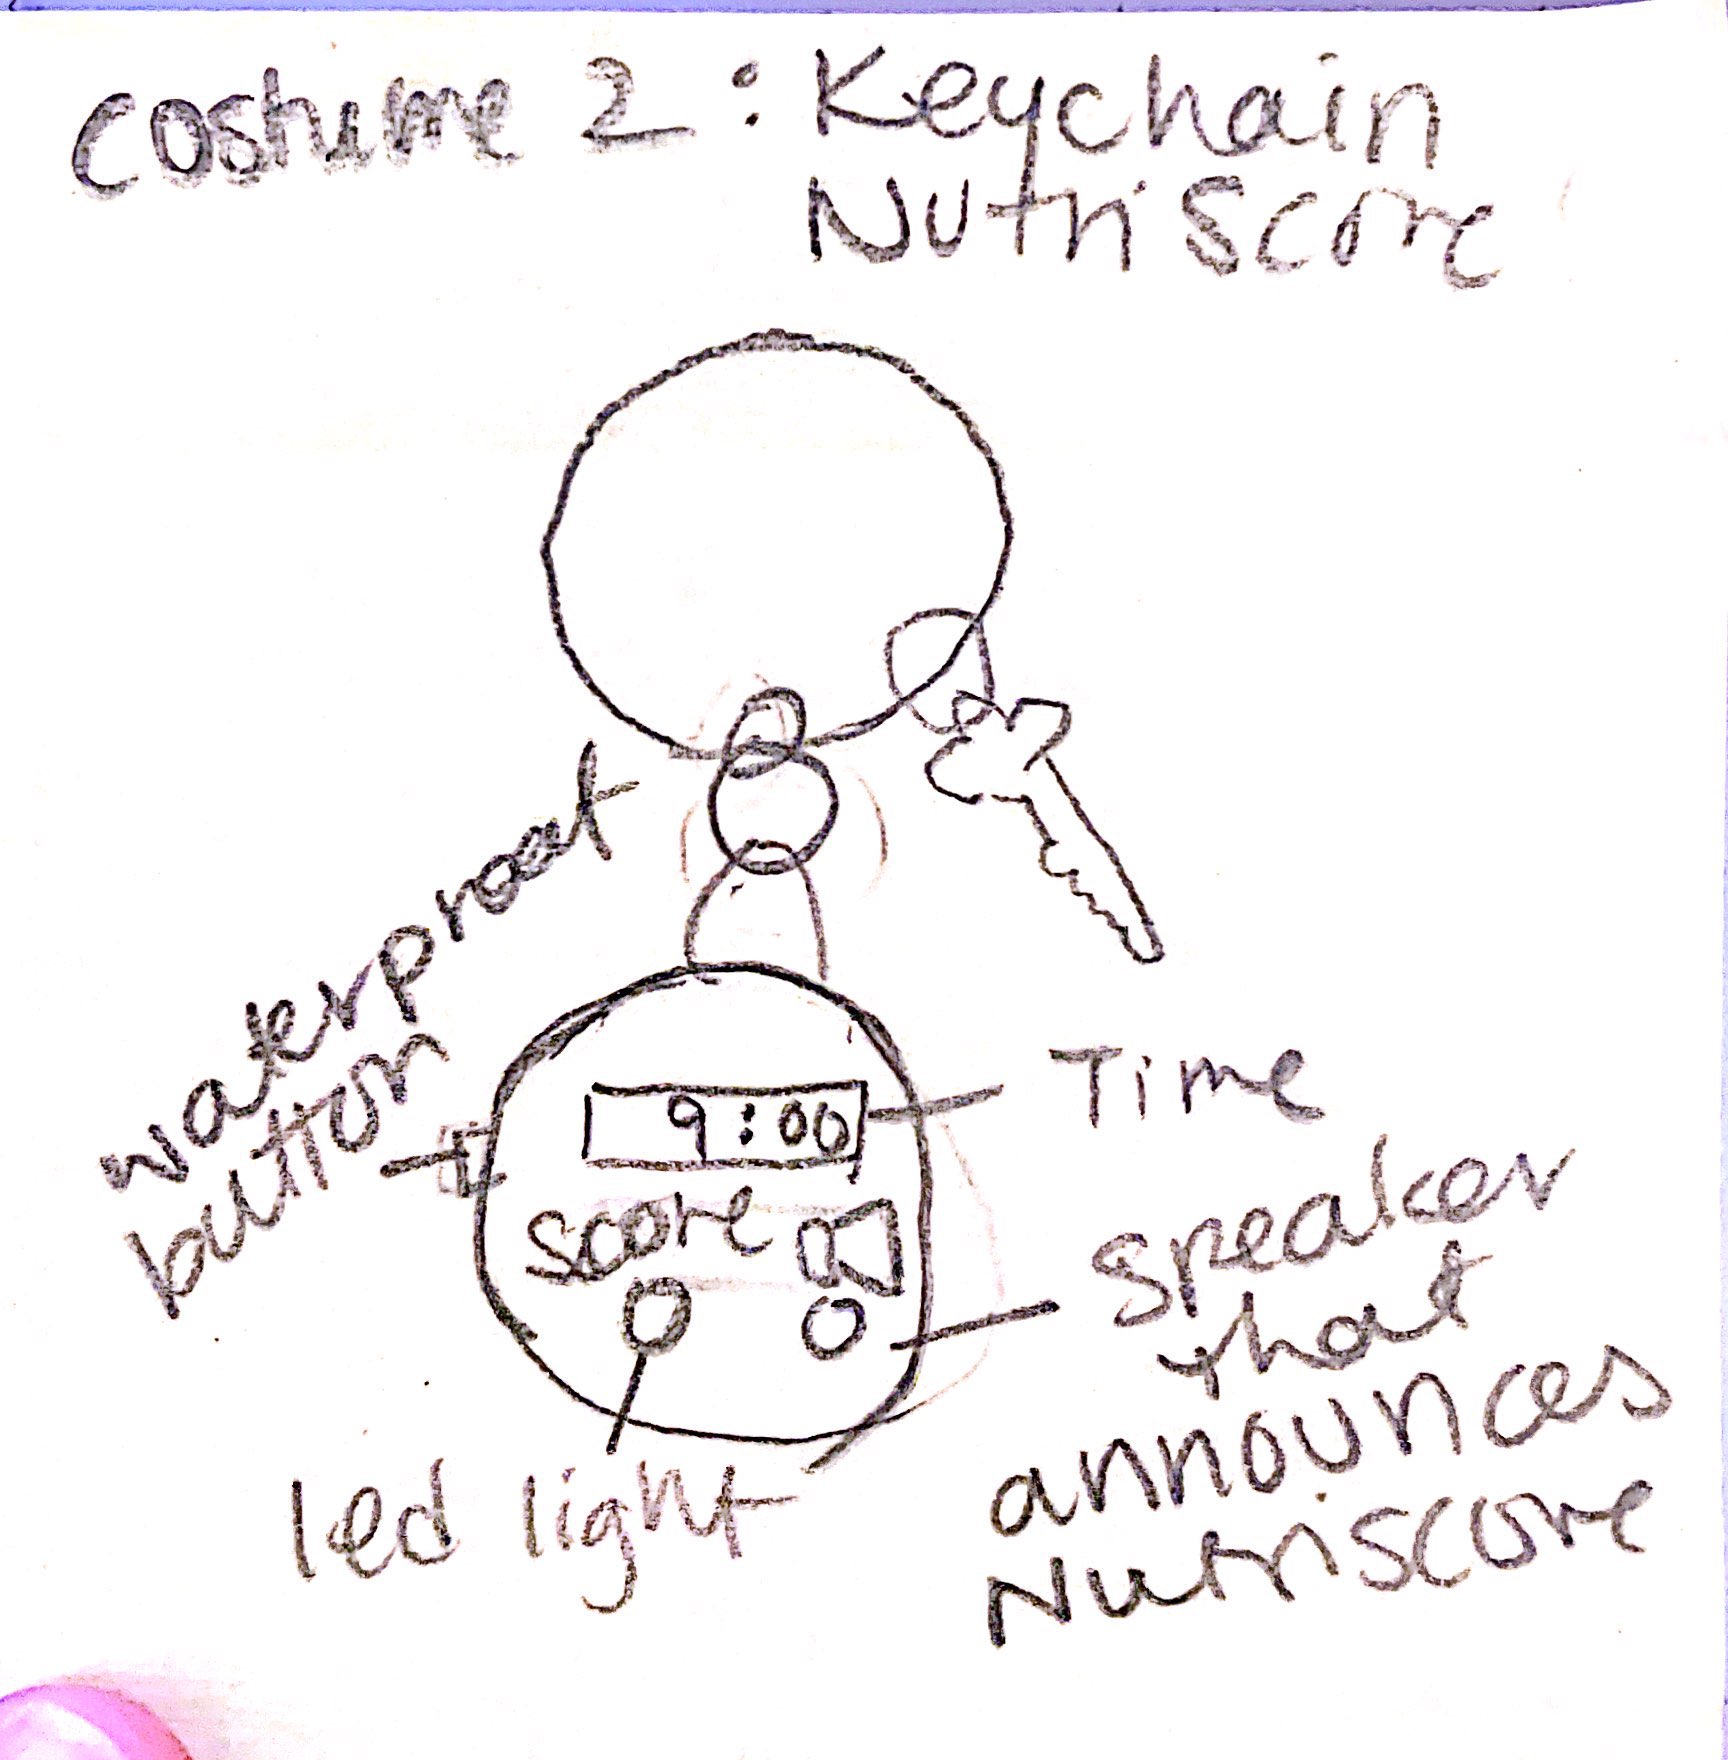 Costume 2 : Keychain
NutriScore
waterproof
button
9:00
Time
score
speaker
that
announces
Nutriscore
led light